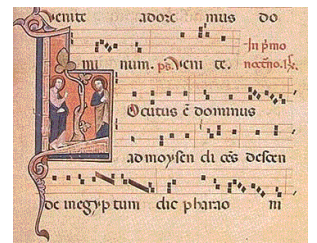 venite adore mus do
mi num. ps. Veni te. In primo
Locutus ē dominus
ad moysen di cēs descen
de in egyp tum dic pharao ni